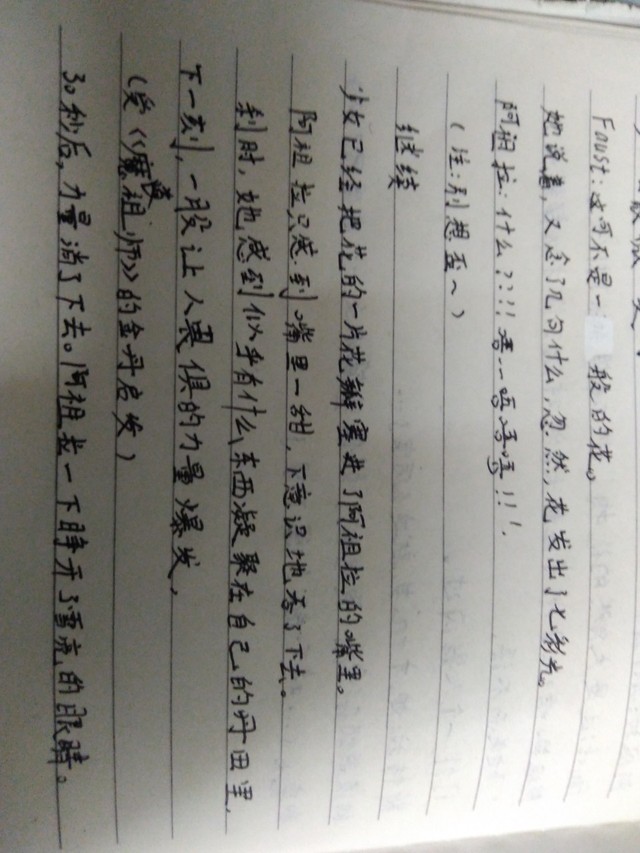 Foust:这可不是一般的花。
她说着,又念了几句什么,忽然,花发出了七彩光。
阿祖拉:什么??!!唔…唔唔唔!!!
(注:别想歪~)
继续
少女已经把花的一片花瓣塞进了阿祖拉的嘴里。
阿祖拉只感到嘴里一甜,下意识地吞了下去。
刹时,她感到似乎有什么东西凝聚在自己的丹田里,
下一刻,一股让人畏惧的力量爆发,
(受《魔祖师》的金丹启发)
30秒后,力量消了下去。阿祖拉一下睁开了雪亮的眼睛。